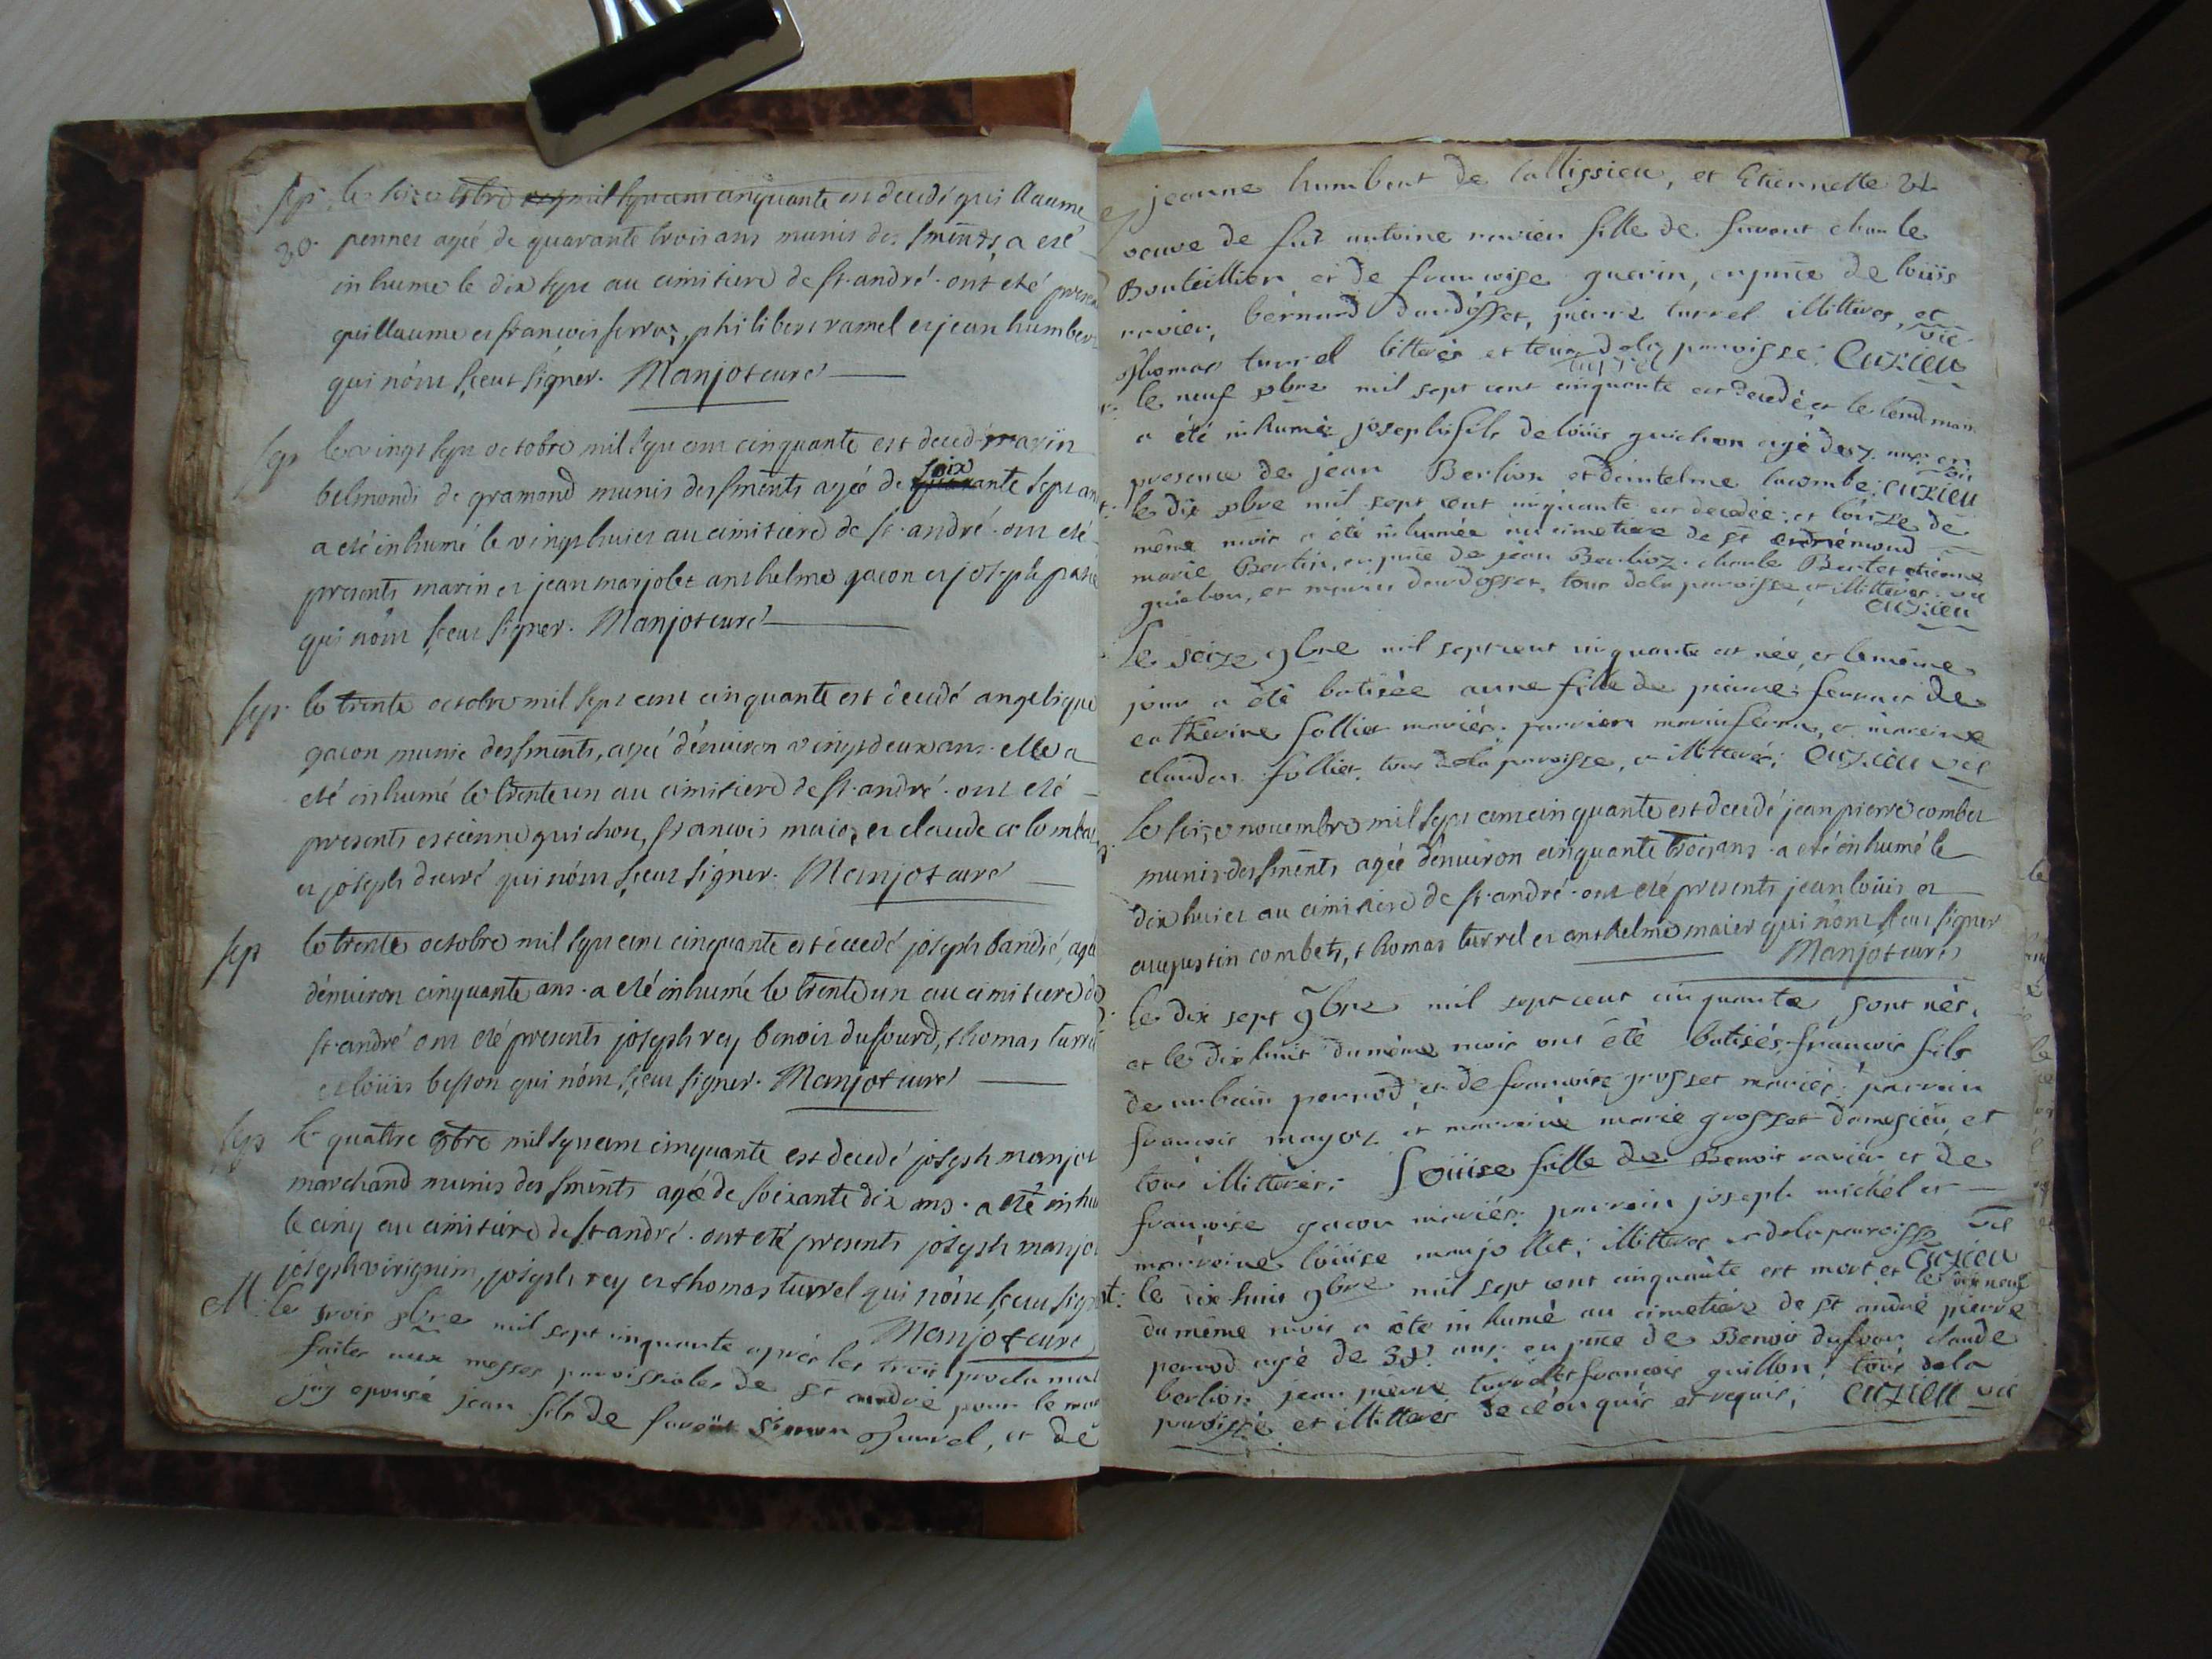 sep le seize 8bre mil sept cent cinquante est decedé guillaume
20 pennet ageé de quarante trois ans munis des smēnts, a eté
inhumé le dix sept au cimitiere de st. andré. ont eté presen
guillaume et francois ferraz, philibert ramel et jean humbert
qui nōnt sceut signer. Manjot curé
sep le vingt sept octobre mil sept cent cinquante est decedé marin
belmondi de gramond munis des smēnts ageé de soixante sept an
a eté inhumé le vingt huict au cimitiere de st. andré. ont eté
presents marin et jean marjolet anthelme gacon et joseph
qui nōnt sceut signer. Manjot curé
sep le trente octobre mil sept cent cinquante est decedé angelique
gacon munie des smēnts, ageé d'enuiron vingt deux ans. elle a
eté inhumé le trente un au cimitiere de st. andré. ont eté
presents estienne guichon, francois et claude colomb
et joseph qui nōnt sceut signer. Manjot curé
sep le trente octobre mil sept cent cinquante est decedé joseph bandié, ageé
d'enuiron cinquante ans. a eté inhumé le trente un au cimitiere de
st. andré ont eté presents joseph rey benoit dufourd, thomas turrel
et loüis beston qui nōnt sceut signer. Manjot curé
sep le quattre 9bre mil sept cent cinquante est decedé joseph manjot
marchand munis des smēnts ageé de soixante dix ans. a eté inhu
le cinq au cimitiere de st andré. ont eté presents joseph manjot
joseph virignin, joseph rey et thomas turrel qui nōnt sceut sign
Manjot curé
M. le trois 9bre mil sept cinquante après les trois proclamat
faites aux messes paroissiales de st andré pour le mar
jay epousé jean fils de favoüt simon Thurrel, et de
jeanne humbert de Collissieu, et Etiennette 21
veuve de fut antoine ravier fille de favout charle
Bouteillier et de francoise guerin, en p̄nce de loüis
ravier, bernard dardosset, pierre turrel illitteres, et
Thomas turrel litteres et tous dela paroisse. Cuzieu vic
turrel
le neuf 9bre mil sept cent cinquante est decedé, et le lendemain
a été inhumé joseph fils de loüis guichon agé de 7. ans en
presence de jean Berlion et d'anthelme lacombe. cuzieu vic
le dix 9bre mil sept cent cinquante est decedée, et l'onze de
même mois a été inhumée au cimetiere de st andré
marie Bertin, en p̄nce de jean Berlioz. charle Bertet etienne
guichon, et marin dardosset, tous dela paroisse et illitteres. vic
cuzieu
Le seize 9bre mil sept cent cinquante est née, et le même
jour a été batisée anne fille de pierre ferra et de
catherine follier mariés; parrien marin ferra, et mareine
claudea follier, tous dela paroisse, et illitterés; cuzieu vic
Le seize novembre mil sept cent cinquante est decedé jean pierre combet
munis des smēnts ageé d'enuiron cinquante trois ans. a eté inhumé le
dix huict au cimitiere de st. andré. ont eté presents jean loüis et
augustin combets, thomas turrel et anthelme maier qui nōnt sceut signer
Manjot curé
le dix sept 9bre mil sept cent cinquante sont nés,
et le dix huit du même mois ont été batisés francois fils
de urbain pernod, et de francoise grosset mariés; parrain
francois mayoz et marreine marie grosset damesieu, et
tous illitterés; Loüise fille de Benoit ravier et de
francoise gacon mariés; parrain joseph michél et
marreine loüise marjollet; illitteres et dela paroisse vic
Cuzieu
et: le dix huit 9bre mil sept cent cinquante est mort et le dix neuf
du même mois a été inhumé au cimetiere de st andré pierre
pernod agé de ans en p̄nce de Benoit dufour claude
berlion jean pierre turrel et francois guillon; tous dela
paroisse et illitteres de ce enquis et requis; cuzieu vic